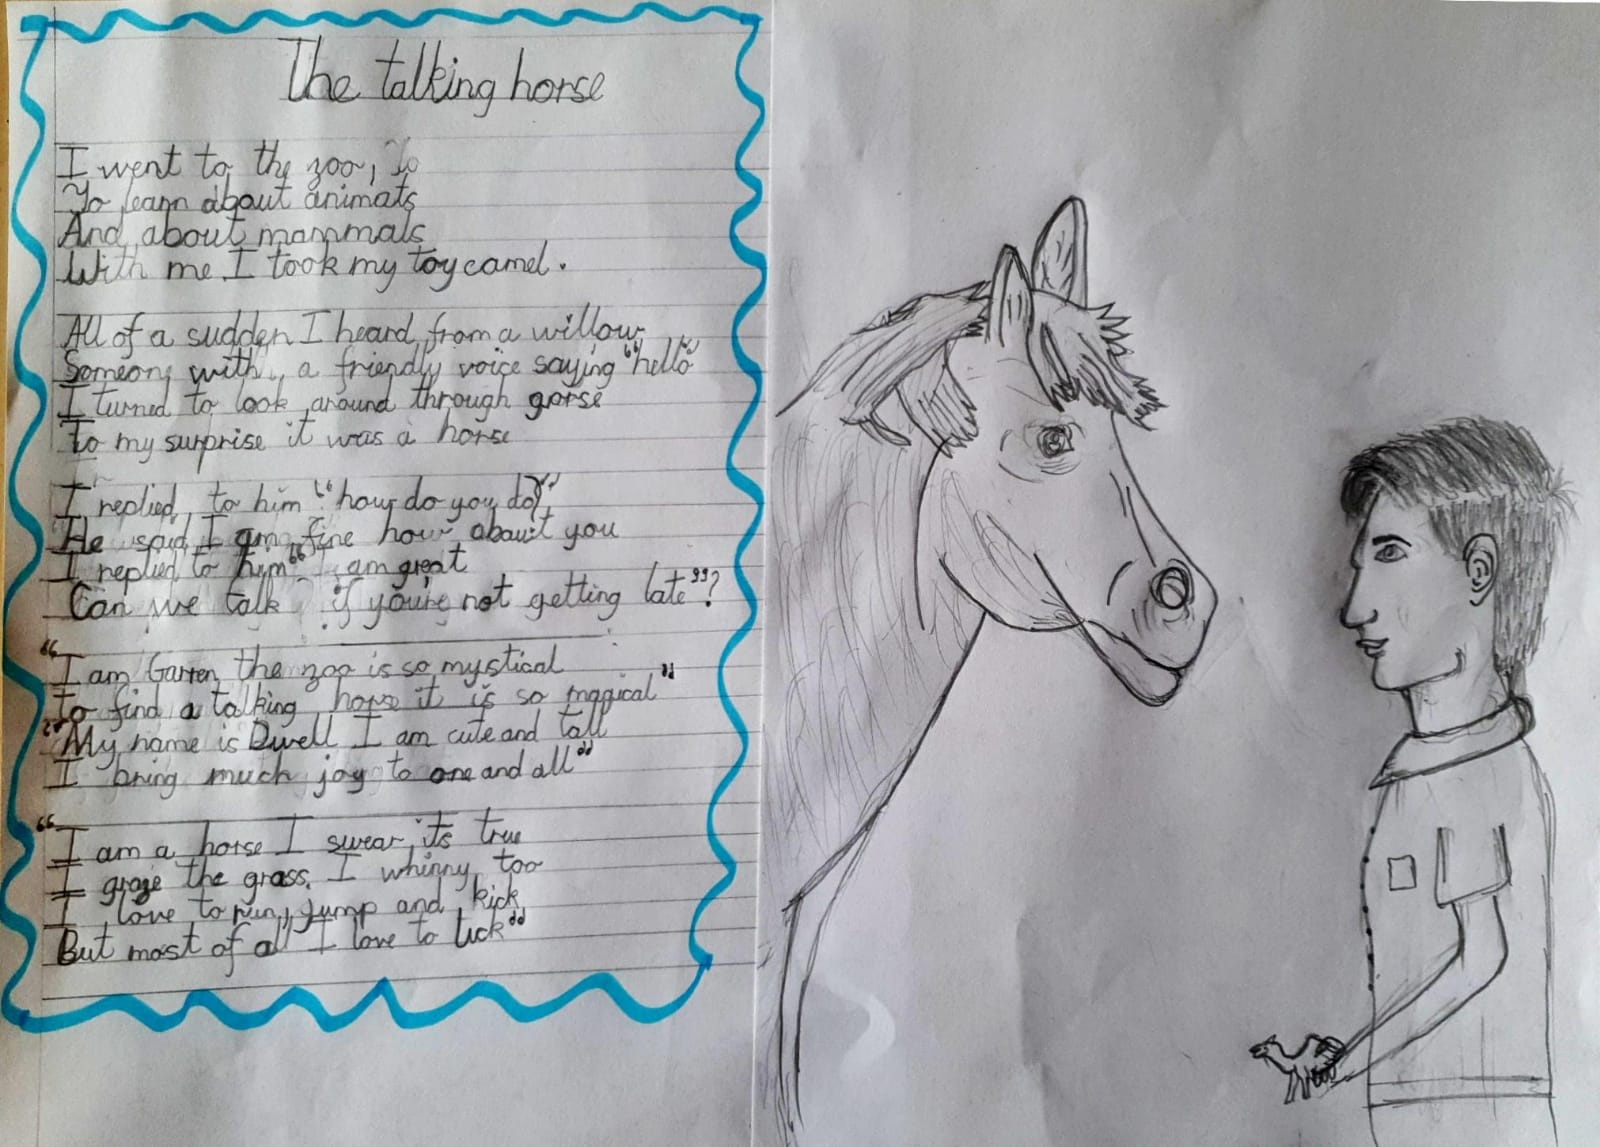 The talking horse
I went to the zoo, To
To learn about animals
And about mammals
With me I took my toy camel.
All of a sudden I heard from a willow
Someone with a friendly voice saying "hello"
I turned to look around through gorse
To my surprise it was a horse
I replied to him "how do you do?"
He said I am fine how about you
I replied to him "I am great
Can we talk if you're not getting late"?
"I am Garren the zoo is so mystical
To find a talking horse it is so magical"
"My name is Dwell I am cute and tall
I bring much joy to one and all"
"I am a horse I swear its true
I graze the grass. I whinny too
I love to run, jump and kick
But most of all I love to lick"